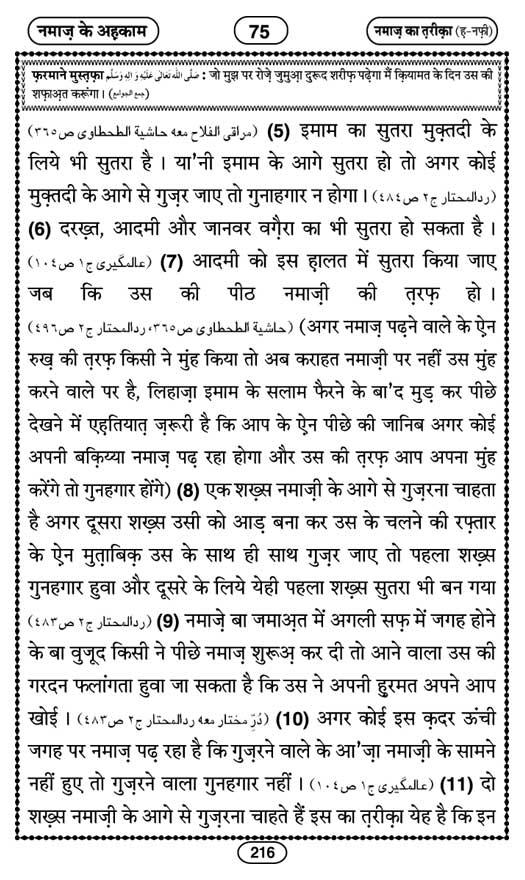 नमाज़ के अह़काम
75
नमाज़ का त़रीक़ा (ह़-नफ़ी)
फ़रमाने मुस्त़फ़ा صَلَّى اللهُ تَعَالٰى عَلَيْهِ وَاٰلِهٖ وَسَلَّم : जो मुझ पर रोज़े जुमुआ़ दुरूद शरीफ़ पढ़ेगा मैं क़ियामत के दिन उस की
शफ़ाअ़त करूंगा। (جمع الجوامع)
(مراقی الفلاح معه حاشية الطحطاوی ص٣٦٥) (5) इमाम का सुतरा मुक़्तदी के
लिये भी सुतरा है। या'नी इमाम के आगे सुतरा हो तो अगर कोई
मुक़्तदी के आगे से गुज़र जाए तो गुनाहगार न होगा। (ردالمحتار ج٢ ص٤٨٤)
(6) दरख़्त, आदमी और जानवर वग़ैरा का भी सुतरा हो सकता है।
(عالمگیری ج١ ص١٠٤) (7) आदमी को इस ह़ालत में सुतरा किया जाए
जब कि उस की पीठ नमाज़ी की त़रफ़ हो।
(حاشية الطحطاوی ص٣٦٥، ردالمحتار ج٢ ص٤٩٦) (अगर नमाज़ पढ़ने वाले के ऐ़न
रुख़ की त़रफ़ किसी ने मुंह किया तो अब कराहत नमाज़ी पर नहीं उस मुंह
करने वाले पर है, लिहाज़ा इमाम के सलाम फैरने के बा'द मुड़ कर पीछे
देखने में एह़तियात़ ज़रूरी है कि आप के ऐ़न पीछे की जानिब अगर कोई
अपनी बक़िय्या नमाज़ पढ़ रहा होगा और उस की त़रफ़ आप अपना मुंह
करेंगे तो गुनहगार होंगे) (8) एक शख़्स नमाज़ी के आगे से गुज़रना चाहता
है अगर दूसरा शख़्स उसी को आड़ बना कर उस के चलने की रफ़्तार
के ऐ़न मुत़ाबिक़ उस के साथ ही साथ गुज़र जाए तो पहला शख़्स
गुनहगार हुवा और दूसरे के लिये येही पहला शख़्स सुतरा भी बन गया
(ردالمحتار ج٢ ص٤٨٣) (9) नमाज़े बा जमाअ़त में अगली सफ़ में जगह होने
के बा वुजूद किसी ने पीछे नमाज़ शुरूअ़ कर दी तो आने वाला उस की
गरदन फलांगता हुवा जा सकता है कि उस ने अपनी ह़ुरमत अपने आप
खोई। (دُرِّمختار معه ردالمحتار ج٢ ص٤٨٣) (10) अगर कोई इस क़दर ऊंची
जगह पर नमाज़ पढ़ रहा है कि गुज़रने वाले के आ'ज़ा नमाज़ी के सामने
नहीं हुए तो गुज़रने वाला गुनहगार नहीं। (عالمگیری ج١ ص١٠٤) (11) दो
शख़्स नमाज़ी के आगे से गुज़रना चाहते हैं इस का त़रीक़ा येह है कि इन
216